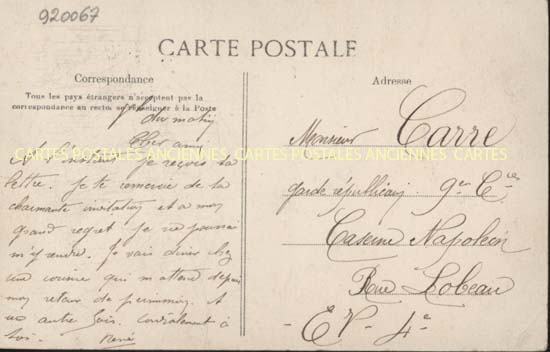 920067
CARTE POSTALE
Correspondance
Tous les pays étrangers n'acceptent pas la
correspondance au recto se renseigner à la Poste
du matin
Cher ami
A l'instant je reçois ta
lettre. Je te remercie de ta
charmante invitation et a mon
grand regret je ne pourrai
m'y rendre. Je vais diner chez
une cousine qui m'attend depuis
mon retour de permission. A
une autre fois. Cordialement à
toi. René
Adresse
Monsieur Carre
garde républicain 9e Cie
Caserne Napoléon
Rue Lobeau
- EV - 4e -
CARTES POSTALES ANCIENNES CARTES POSTALES ANCIENNES CARTES